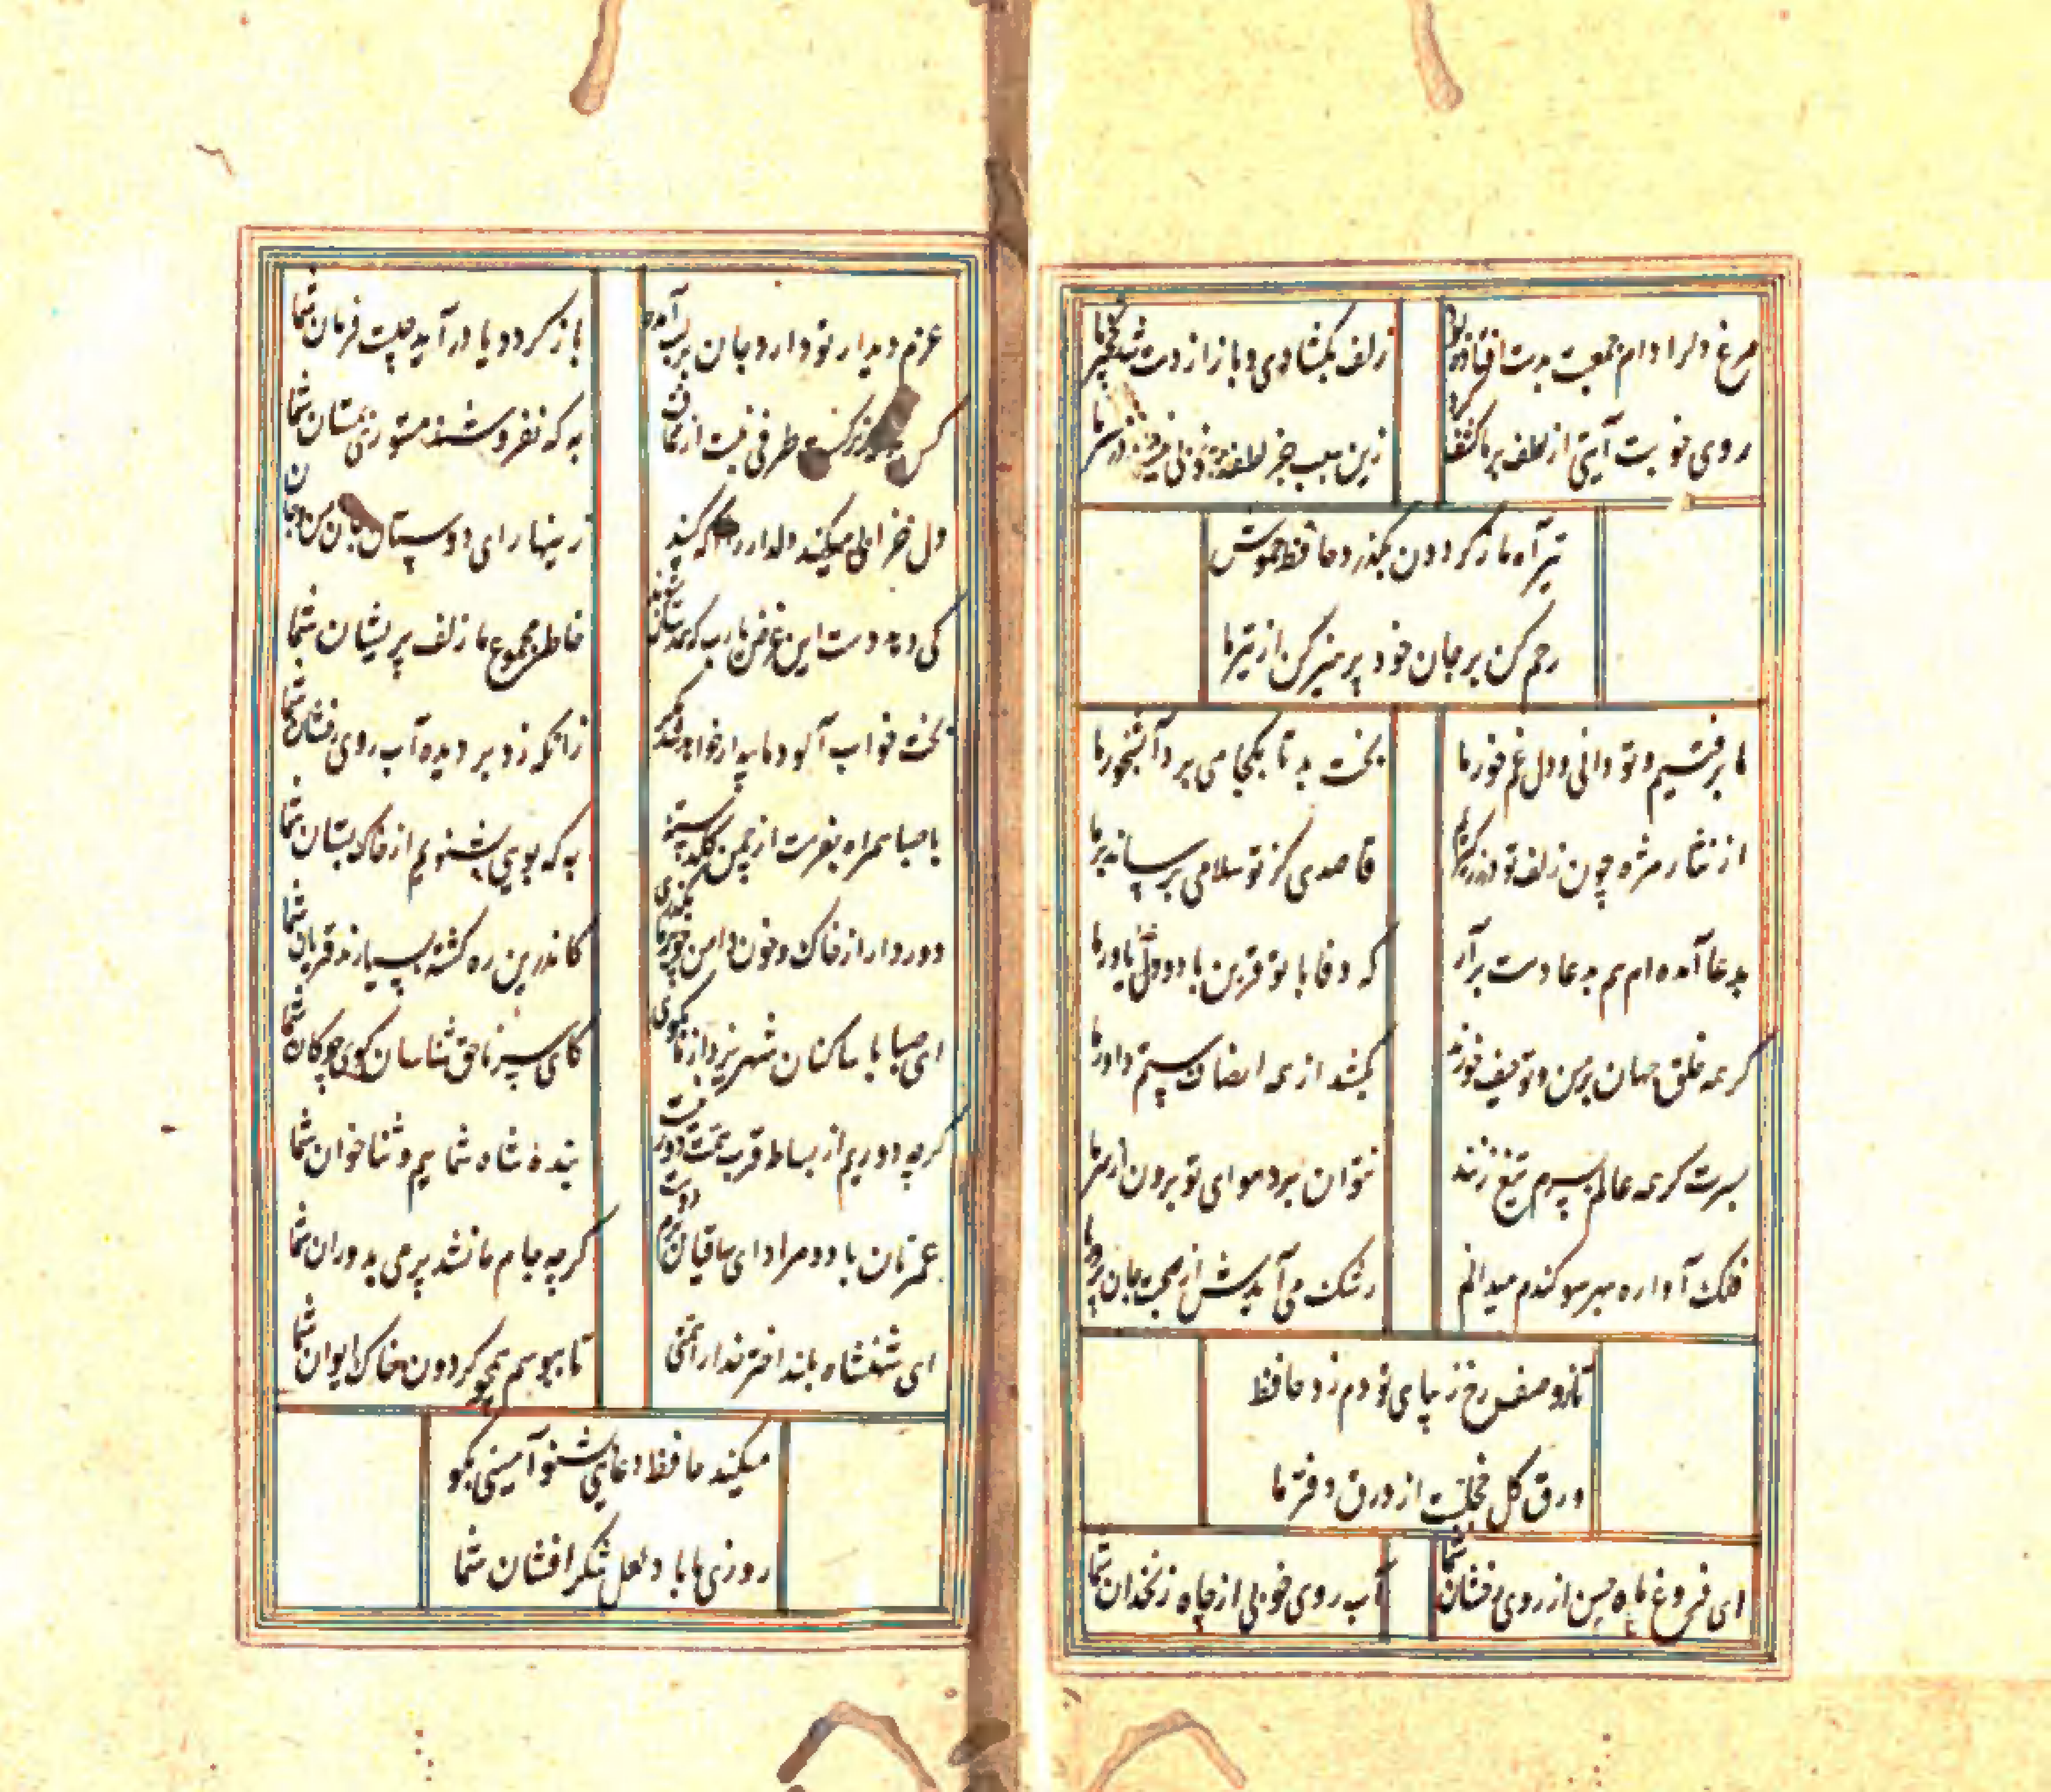 مرغ دلرا دام جمعیت بدست افتاده بود
زلف بگشادی و باز از دست شد نخجیر ما
روی خوبت آیتی از لطف بر ما کشف کرد
زین سبب جز لطف و خوبی نیست در تفسیر ما
تیر آه ما ز گردون بگذرد حافظ خموش
رحم کن بر جان خود پرهیز کن از تیر ما
ما برفتیم و تو دانی و دل غم خور ما
بخت بد تا بکجا می برد آبشخور ما
از نثار مژه چون زلف تو در زر گیرم
قاصدی کز تو سلامی برساند بر ما
بدعا آمده ام هم بدعا دست برآر
که وفا با تو قرین باد و خدا یاور ما
گر همه خلق جهان بر من و تو حیف خورند
بکشد از همه انصاف ستم داور ما
بسرت گر همه عالم بسرم تیغ زنند
نتوان برد هوای تو برون از سر ما
فلک آواره بهر سو کندم میدانم
رشک می آیدش از صحبت جان پرور ما
تا ز وصف رخ زیبای تو دم زد حافظ
ورق گل خجلست از ورق دفتر ما
ای فروغ ماه حسن از روی رخشان شما
آب روی خوبی از چاه زنخدان شما
عزم دیدار تو دارد جان بر لب آمده
باز گردد یا در آید چیست فرمان شما
کس نرگست طرفی نبست از عافیت
به که نفروشند مستوری بمستان شما
دل خرابی میکند دلدار را آگه کنید
زینهار ای دوستان جان من و جان
کی دهد دست این غرض یارب که همدستان شوند
خاطر مجموع ما زلف پریشان شما
بخت خواب آلود ما بیدار خواهد شد مگر
زانکه زد بر دیده آب روی رخشان شما
با صبا همراه بفرست از چمن گلدسته
به که بویی بشنویم از خاک بستان شما
دور دار از خاک و خون دامن چو بر ما بگذری
کاندرین ره کشته بسیارند قربان شما
ای صبا با ساکنان شهر یزد از ما بگوی
کای سر ناحق شناسان گوی چوگان شما
گرچه دوریم از بساط قرب همت دور نیست
بنده شاه شماییم و ثنا خوان شما
عمرتان باد و مراد ای ساقیان بزم
گرچه جام ما نشد پر می بدوران شما
ای شهنشاه بلند اختر خدا را همتی
تا ببوسم همچو گردون خاک ایوان شما
میکند حافظ دعایی بشنو آمینی بگو
روزی ما باد لعل شکر افشان شما